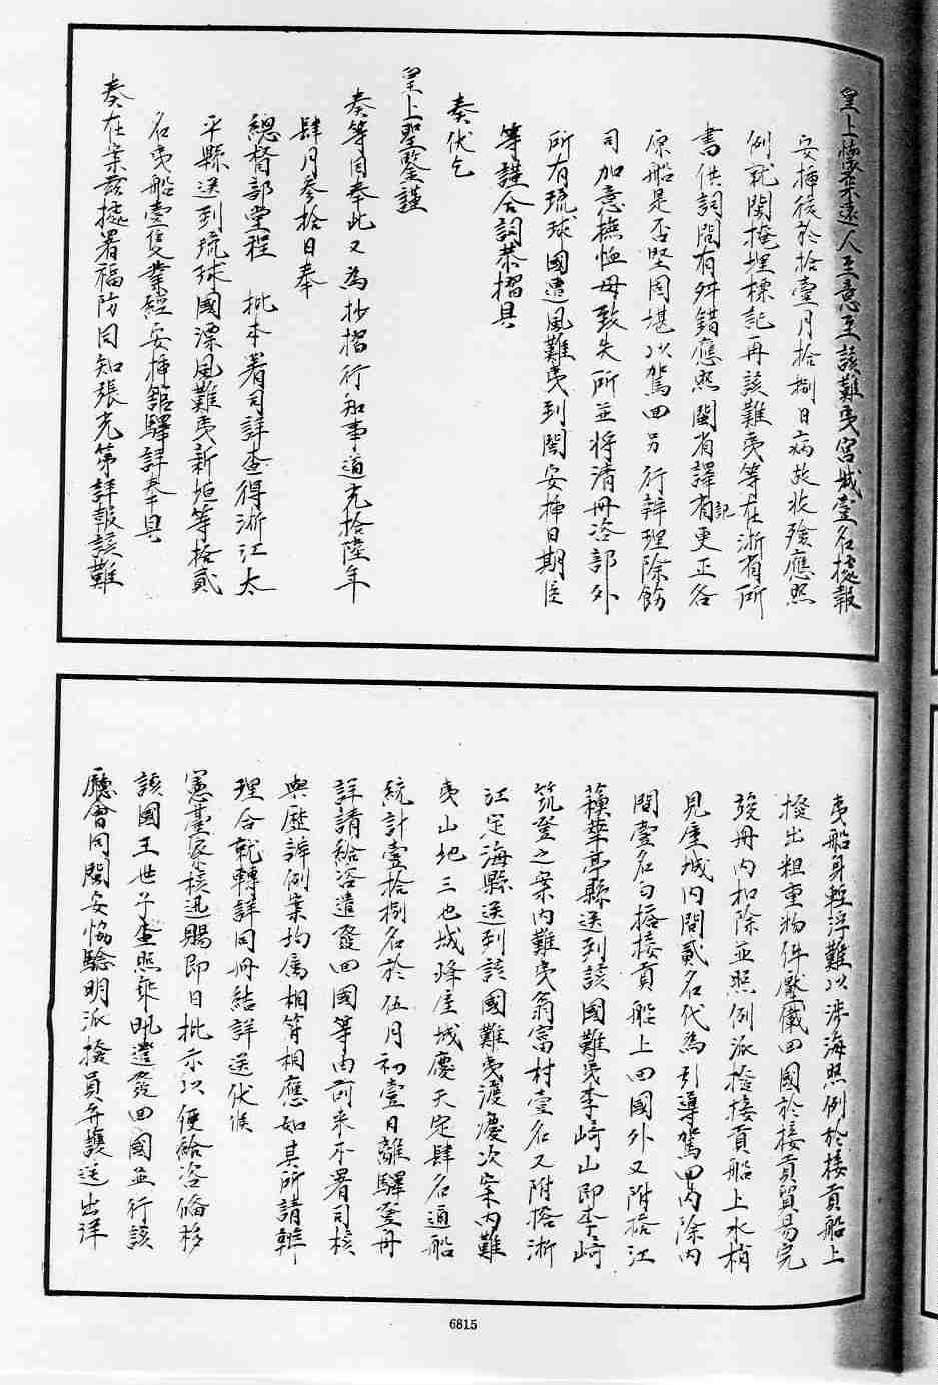 皇上懷柔遠人至意至該難夷宮城壹名據報
安揷後於拾壹月拾捌日病故收殮應照
例就閩掩埋標記再該難夷等在浙省所
書供詞間有舛錯應照閩省譯記更正各
原船是否堅固堪以駕回另行辦理除飭
司加意撫恤毋致失所並將清冊咨部外
所有琉球國遭風難夷到閩安揷日期臣
等謹合詞恭摺具
奏伏乞
皇上聖鑒謹
奏等因奉此又為抄摺行知事道光拾陸年
肆月參拾日奉
總督部堂程 批本署司詳查得浙江太
平縣送到琉球國漂風難夷新垣等拾貳
名夷船壹隻業經安揷館驛詳奉具
奏在案茲據署福防同知張光第詳報該難
夷船身輕浮難以涉海照例於接貢船上
撥出粗重物件壓儎回國於接貢貿易完
竣冊內扣除並照例派撥接貢船上水梢
見座城內間貳名代為引導駕回內除內
間壹名勻搭接貢船上回國外又附搭江
蘇華亭縣送到該國難夷李崎山即李崎
筑登之案內難夷翁富村壹名又附搭浙
江定海縣送到該國難夷渡慶次案內難
夷山地三也城峰座城慶天宅肆名通船
統計壹拾捌名於伍月初壹日離驛登舟
詳請給咨遣發回國等由前來本署司核
與歷辦例案均屬相符相應如其所請辦
理合就轉詳同冊結詳送伏候
憲臺察核迅賜即日批示以便給咨備移
該國王世子查照乘汛遣發回國並行該
廳會同閩安協驗明派撥員弁護送出洋
6815